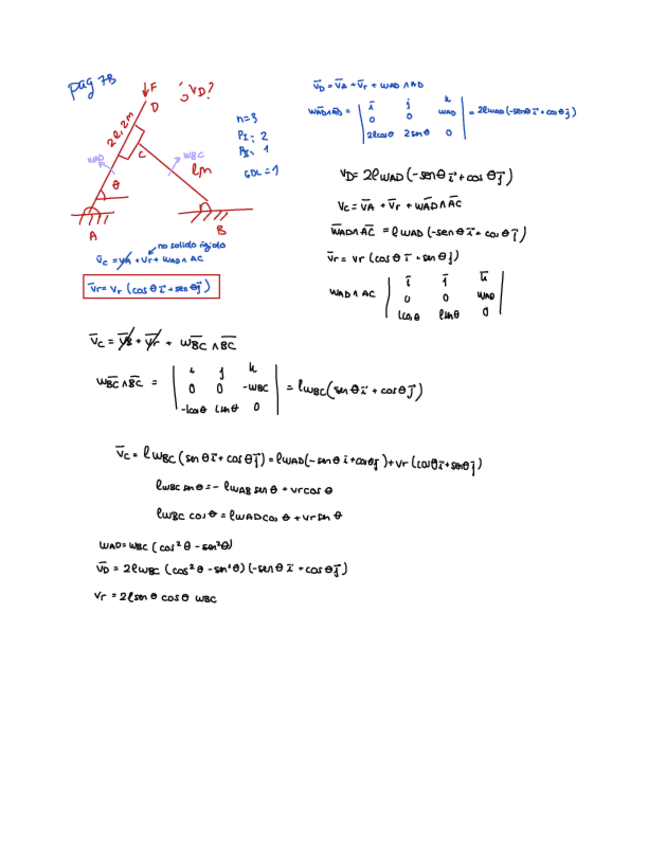 pag 7B
↓F
D
¿VD?
2l, 2m
C
WAD
WBC
θ
lm
A
B
n=3
PI: 2
PII: 1
GDL=1
no solido rígido
v̄c = v̄A + v̄r + WAD ∧ AC
v̄r = vr (cos θ ī + sen θ j̄)
v̄D = v̄A + v̄r + WAD ∧ AD
WAD∧AD = | ī j̄ k | 0 0 WAD | 2lcosθ 2senθ 0 | = 2lWAD (-senθ ī + cosθ j̄)
VD = 2lWAD (-senθ ī + cos θ j̄)
Vc = v̄A + v̄r + WAD∧AC
WAD∧AC = lWAD (-sen θ ī + cos θ j̄)
v̄r = vr (cosθ ī + senθ j̄)
WAD ∧ AC | ī j̄ k̄ | 0 0 WAD | lcosθ lsenθ 0 |
v̄c = v̄B + v̄r + WBC ∧ BC
WBC∧BC = | i j k | 0 0 -WBC | -lcosθ lsinθ 0 | = lWBC (sen θ ī + cosθ j̄)
v̄c = lWBC (sen θ ī + cos θ j̄) = lWAD (-sen θ i + cosθ j) + vr (cosθ ī + senθ j̄)
lWBC sen θ = - lWAB sen θ + vr cos θ
lWBC cos θ = lWAD cos θ + vr sen θ
WAD = WBC (cos² θ - sen² θ)
v̄D = 2lWBC (cos² θ - sen² θ) (-sen θ ī + cos θ j̄)
Vr = 2lsen θ cos θ WBC